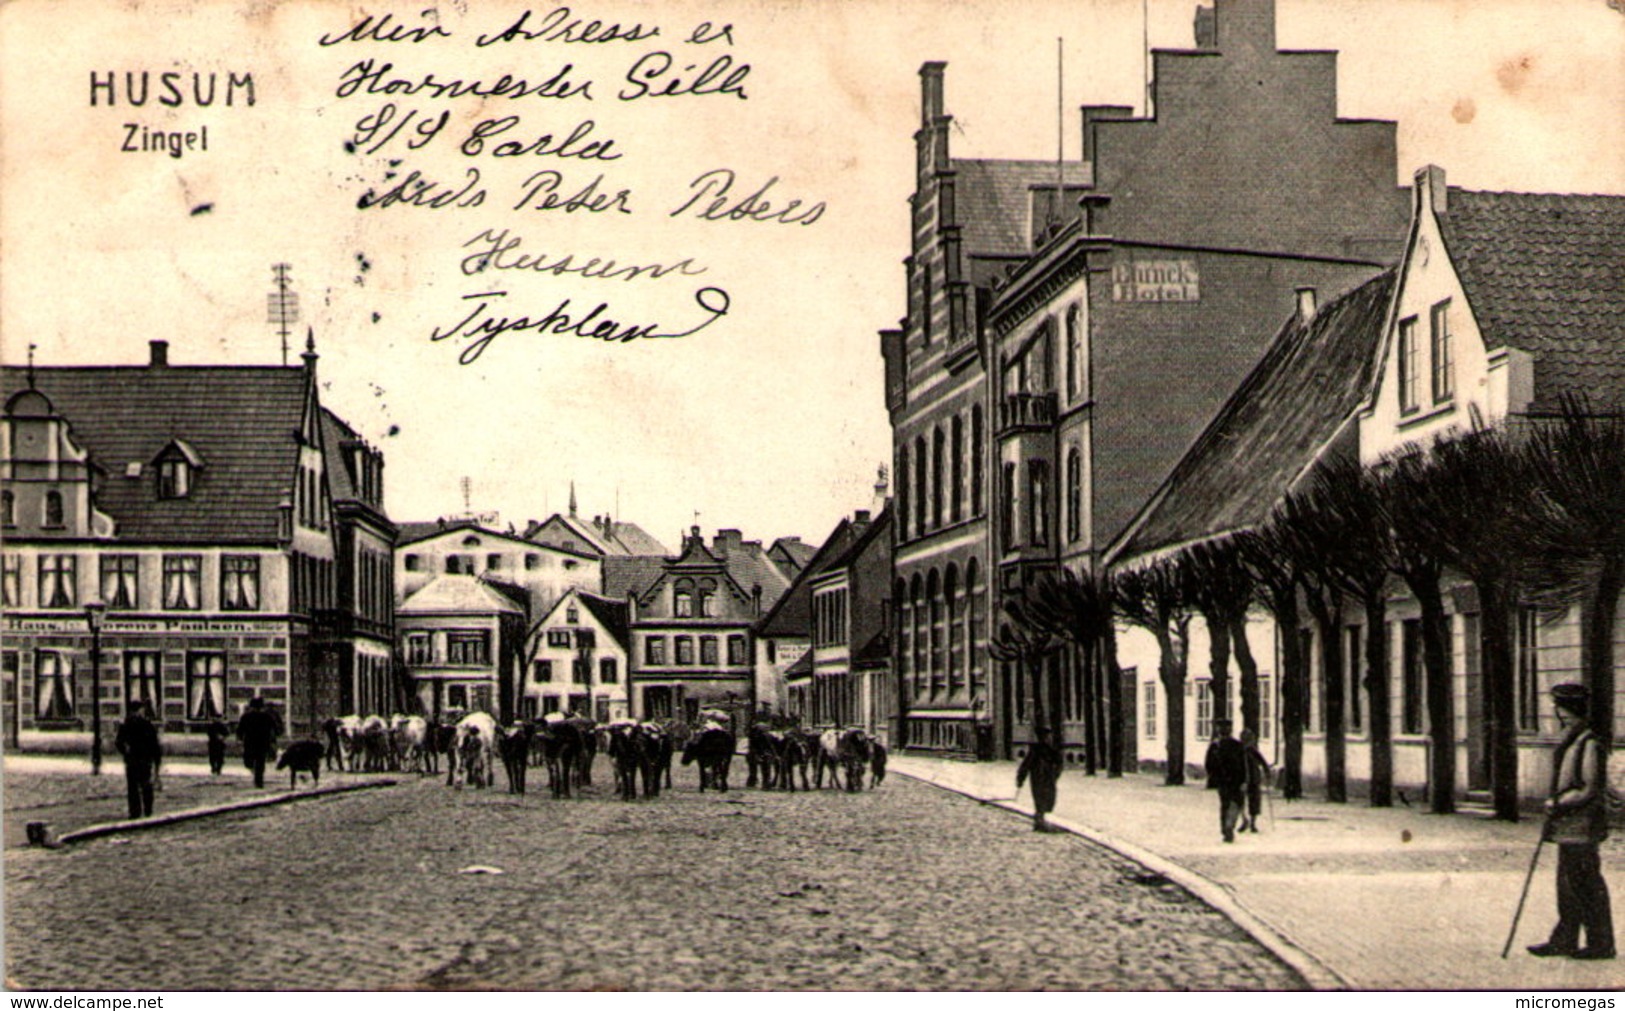 HUSUM
Zingel
Min Adresse er
Hovmester Gill
S/S Carla
Adr Peter Peters
Husum
Tyskland
Hotel
Haus. Lorenz Paulsen.
www.delcampe.net
micromegas